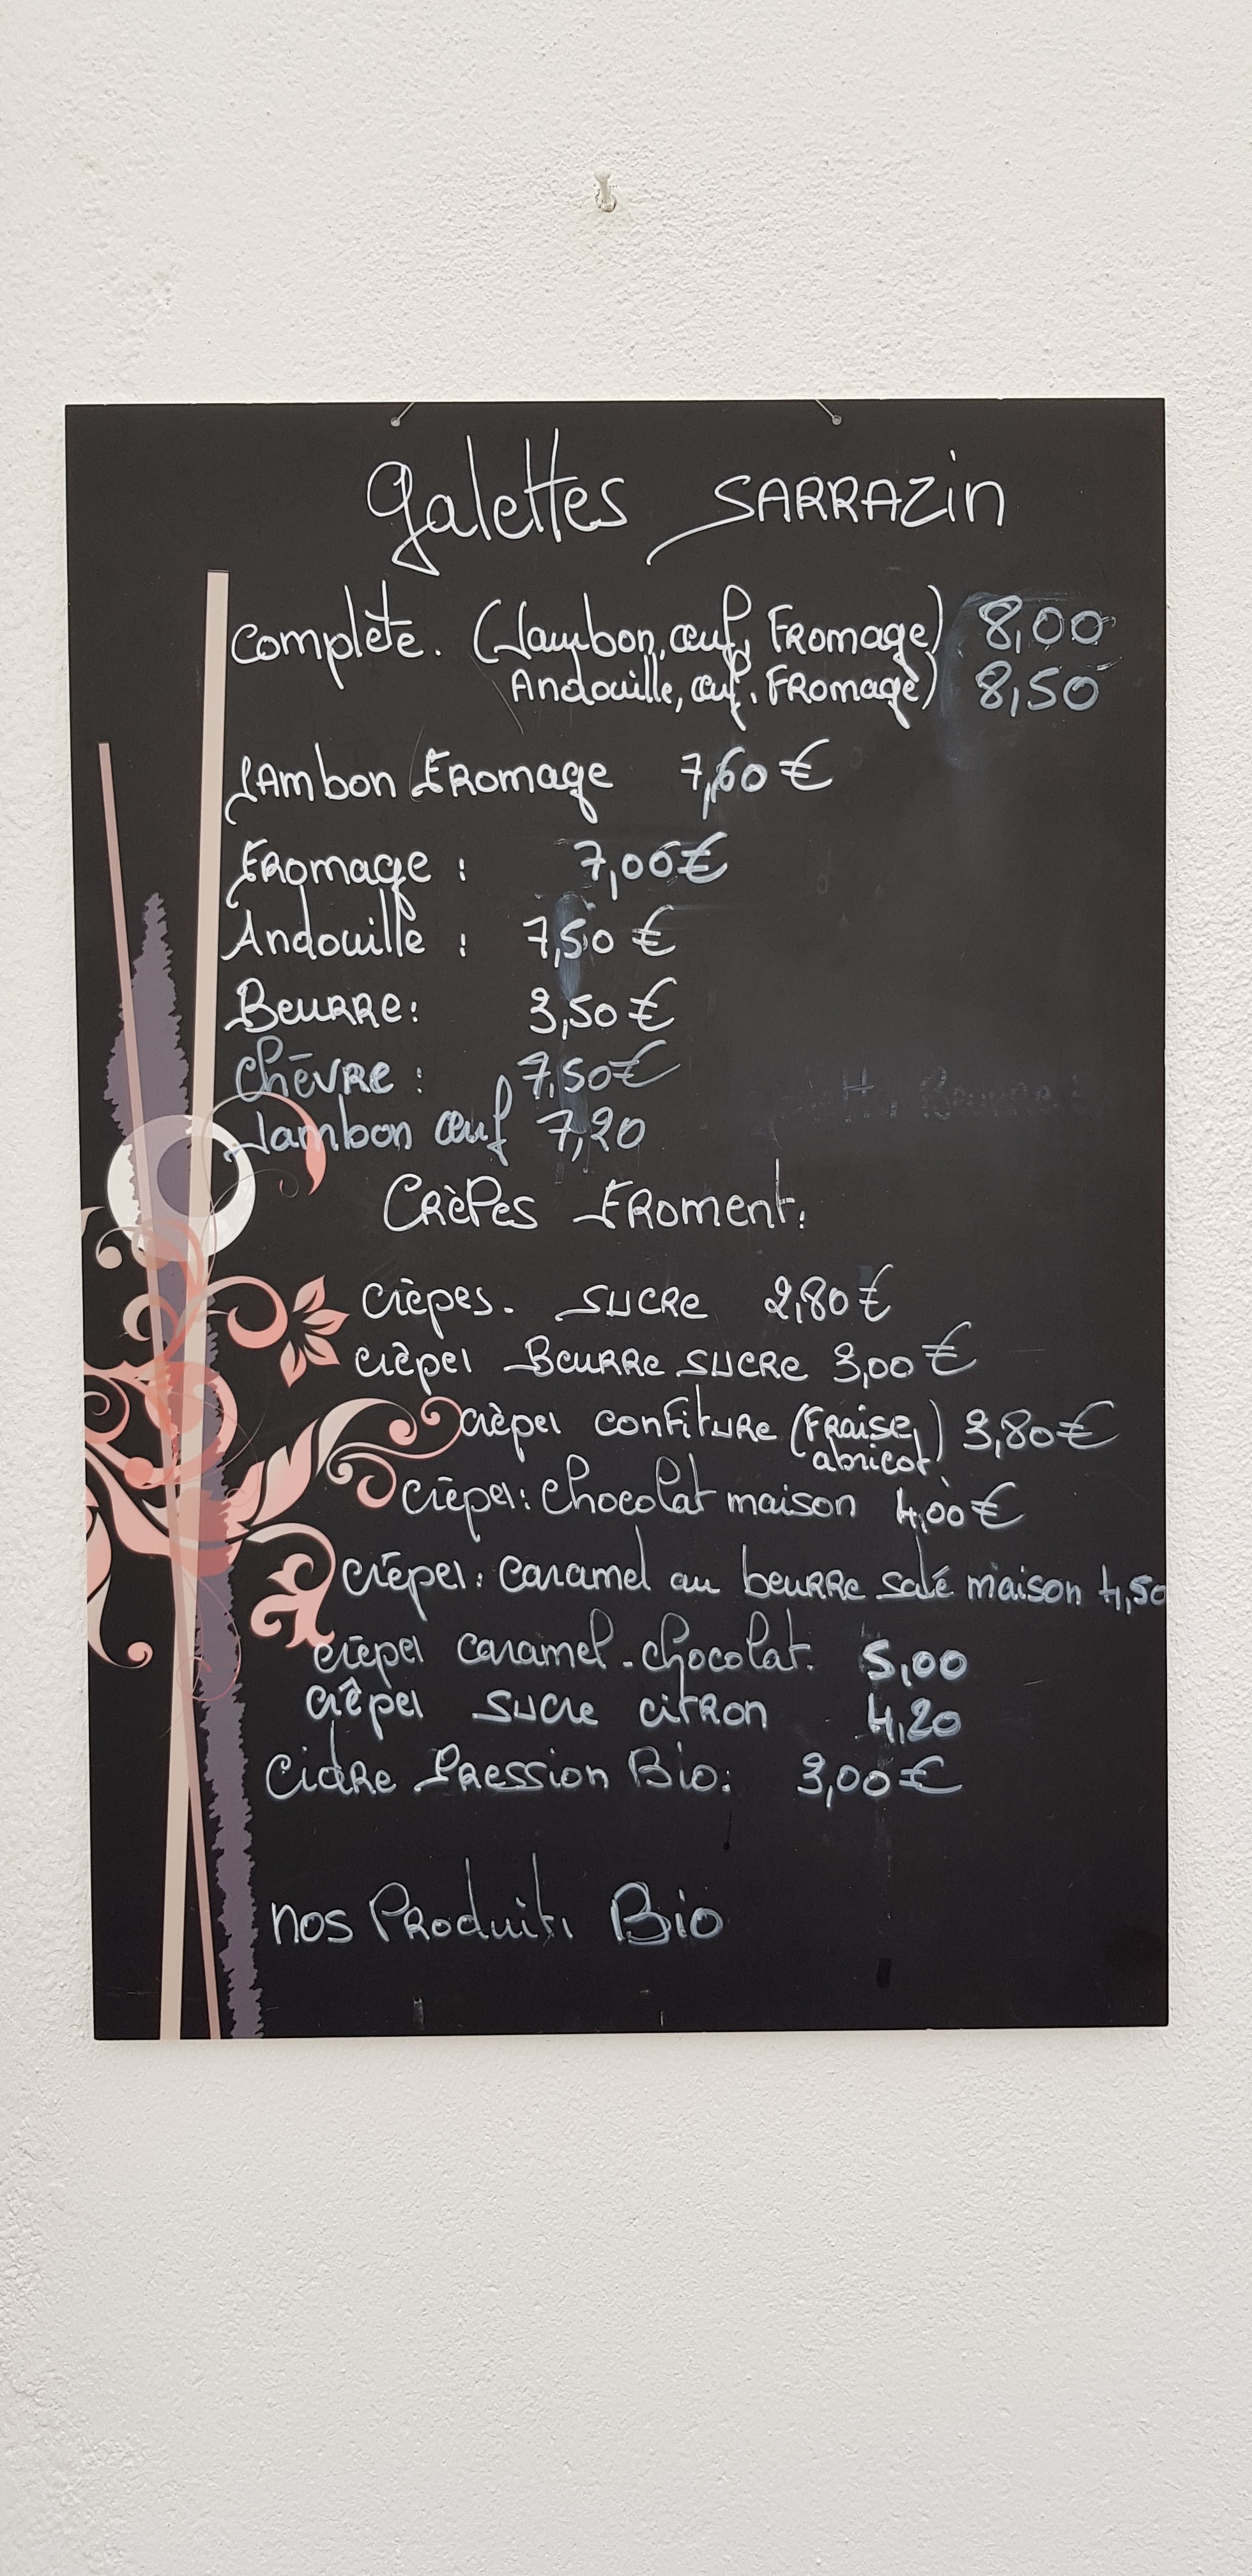 galettes SARRAZin
Complète. (Jambon, œuf, Fromage) 8,00
Andouille, œuf, Fromage) 8,50
JAmbon Fromage 7,60 €
Fromage : 7,00 €
Andouille : 7,50 €
Beurre : 3,50 €
chèvre : 7,50 €
Jambon œuf 7,20
Crèpes Froment.
crèpes. sucre 2,80 €
crèpes Beurre sucre 3,00 €
crèpes confiture (Fraise, 3,80 €
abricot)
crèpes : chocolat maison 4,00 €
crèpes : caramel au beurre salé maison 4,50
crèpes caramel - chocolat. 5,00
crêpes sucre citron 4,20
Cidre Pression Bio : 3,00 €
nos Produits Bio